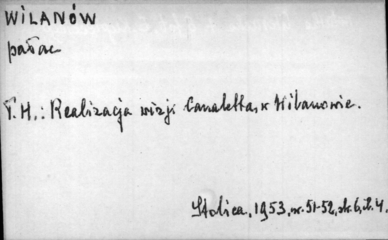 WILANÓW
pałac
T. H.: Realizacja wizji Canaletta, w Wilanowie.
Stolica, 1953, nr. 51-52, str. 6, il. 4.